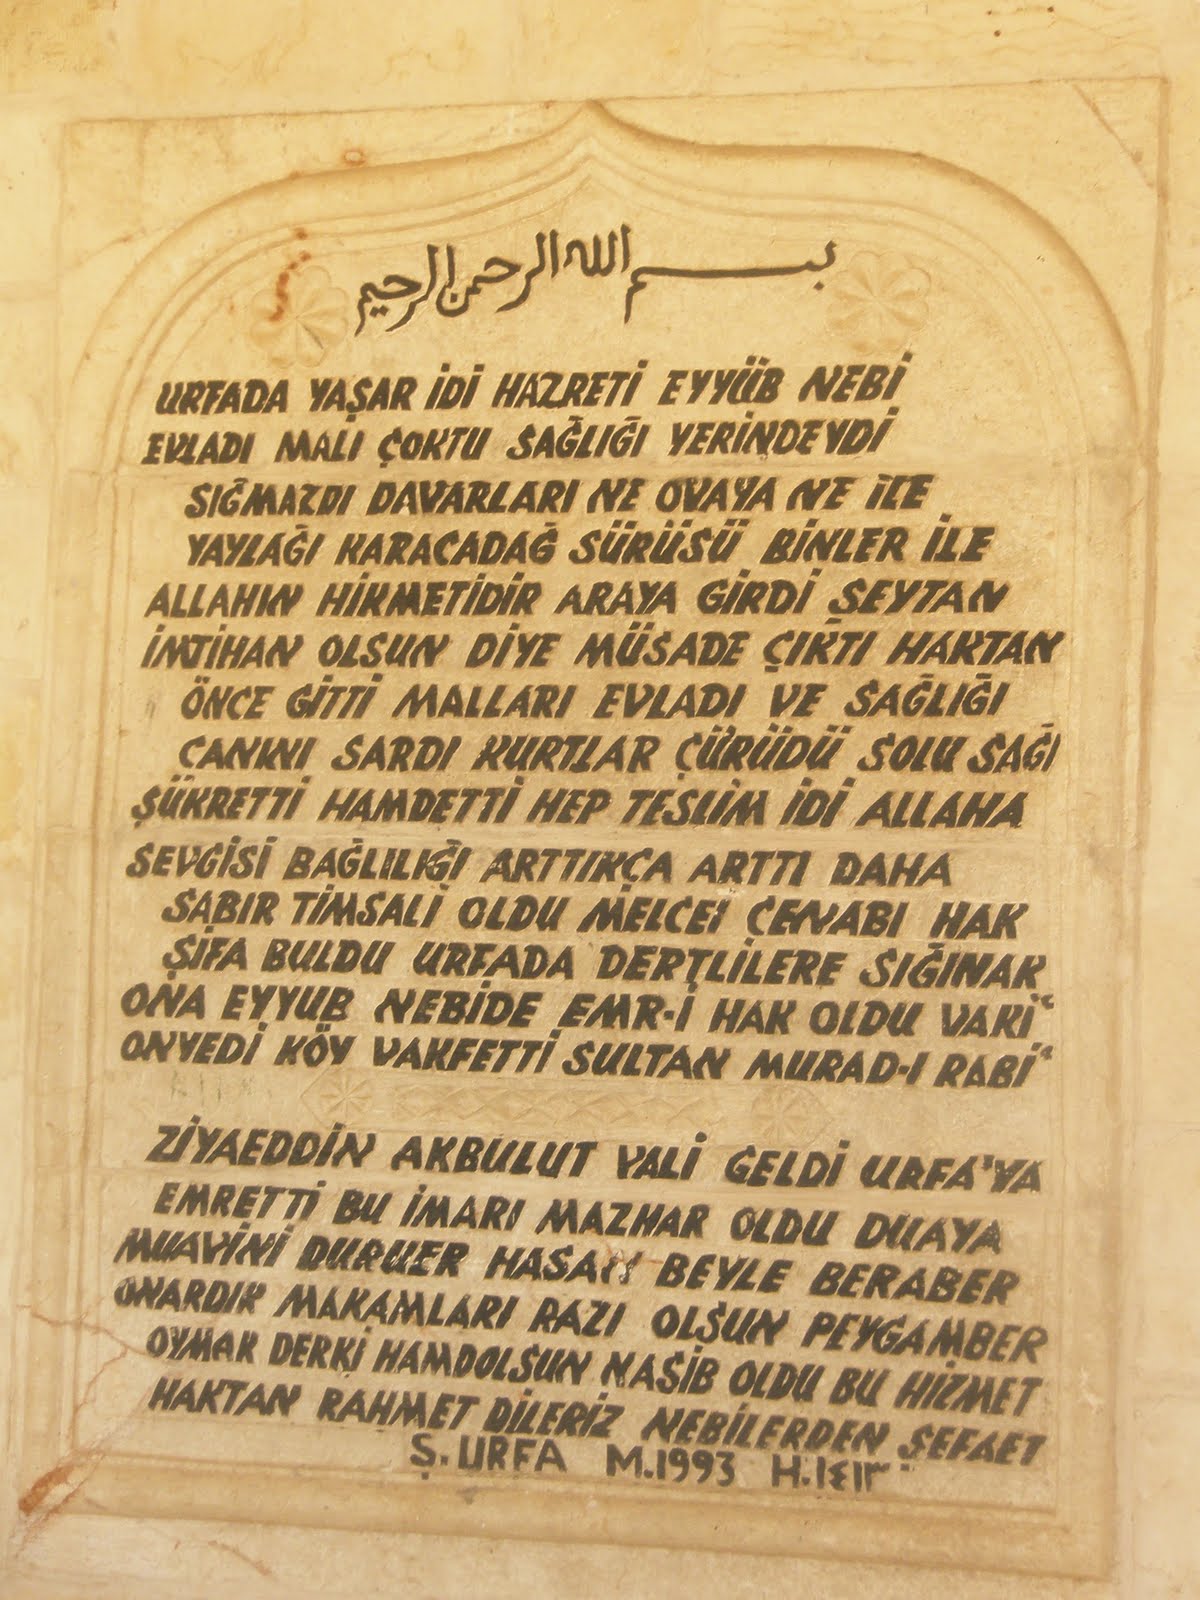 بسم الله الرحمن الرحيم
URFADA YAŞAR İDİ HAZRETİ EYYÜB NEBİ
EVLADI MALI ÇOKTU SAĞLIĞI YERİNDEYDİ
SIĞMAZDI DAVARLARI NE OVAYA NE İLE
YAYLAĞI KARACADAĞ SÜRÜSÜ BİNLER İLE
ALLAHIN HİKMETİDİR ARAYA GİRDİ ŞEYTAN
İMTİHAN OLSUN DİYE MÜSADE ÇIKTI HAKTAN
ÖNCE GİTTİ MALLARI EVLADI VE SAĞLIĞI
CANINI SARDI KURTLAR ÇÜRÜDÜ SOLU SAĞI
ŞÜKRETTİ HAMDETTİ HEP TESLİM İDİ ALLAHA
SEVGİSİ BAĞLILIĞI ARTTIKÇA ARTTI DAHA
SABIR TİMSALİ OLDU MELCEİ CENABI HAK
ŞİFA BULDU URFADA DERTLİLERE SIĞINAK
ONA EYYUB NEBİDE EMR-İ HAK OLDU VAKİ‘
ONYEDİ KÖY VAKFETTİ SULTAN MURAD-I RABİ‘
ZİYAEDDİN AKBULUT VALİ GELDİ URFA'YA
EMRETTİ BU İMARI MAZHAR OLDU DUAYA
MUAVİNİ DURUER HASAN BEYLE BERABER
ONARDIK MAKAMLARI RAZI OLSUN PEYGAMBER
OYMAK DERKİ HAMDOLSUN NASİB OLDU BU HİZMET
HAKTAN RAHMET DİLERİZ NEBİLERDEN ŞEFAET
Ş.URFA M.1993 H.١٤١٣